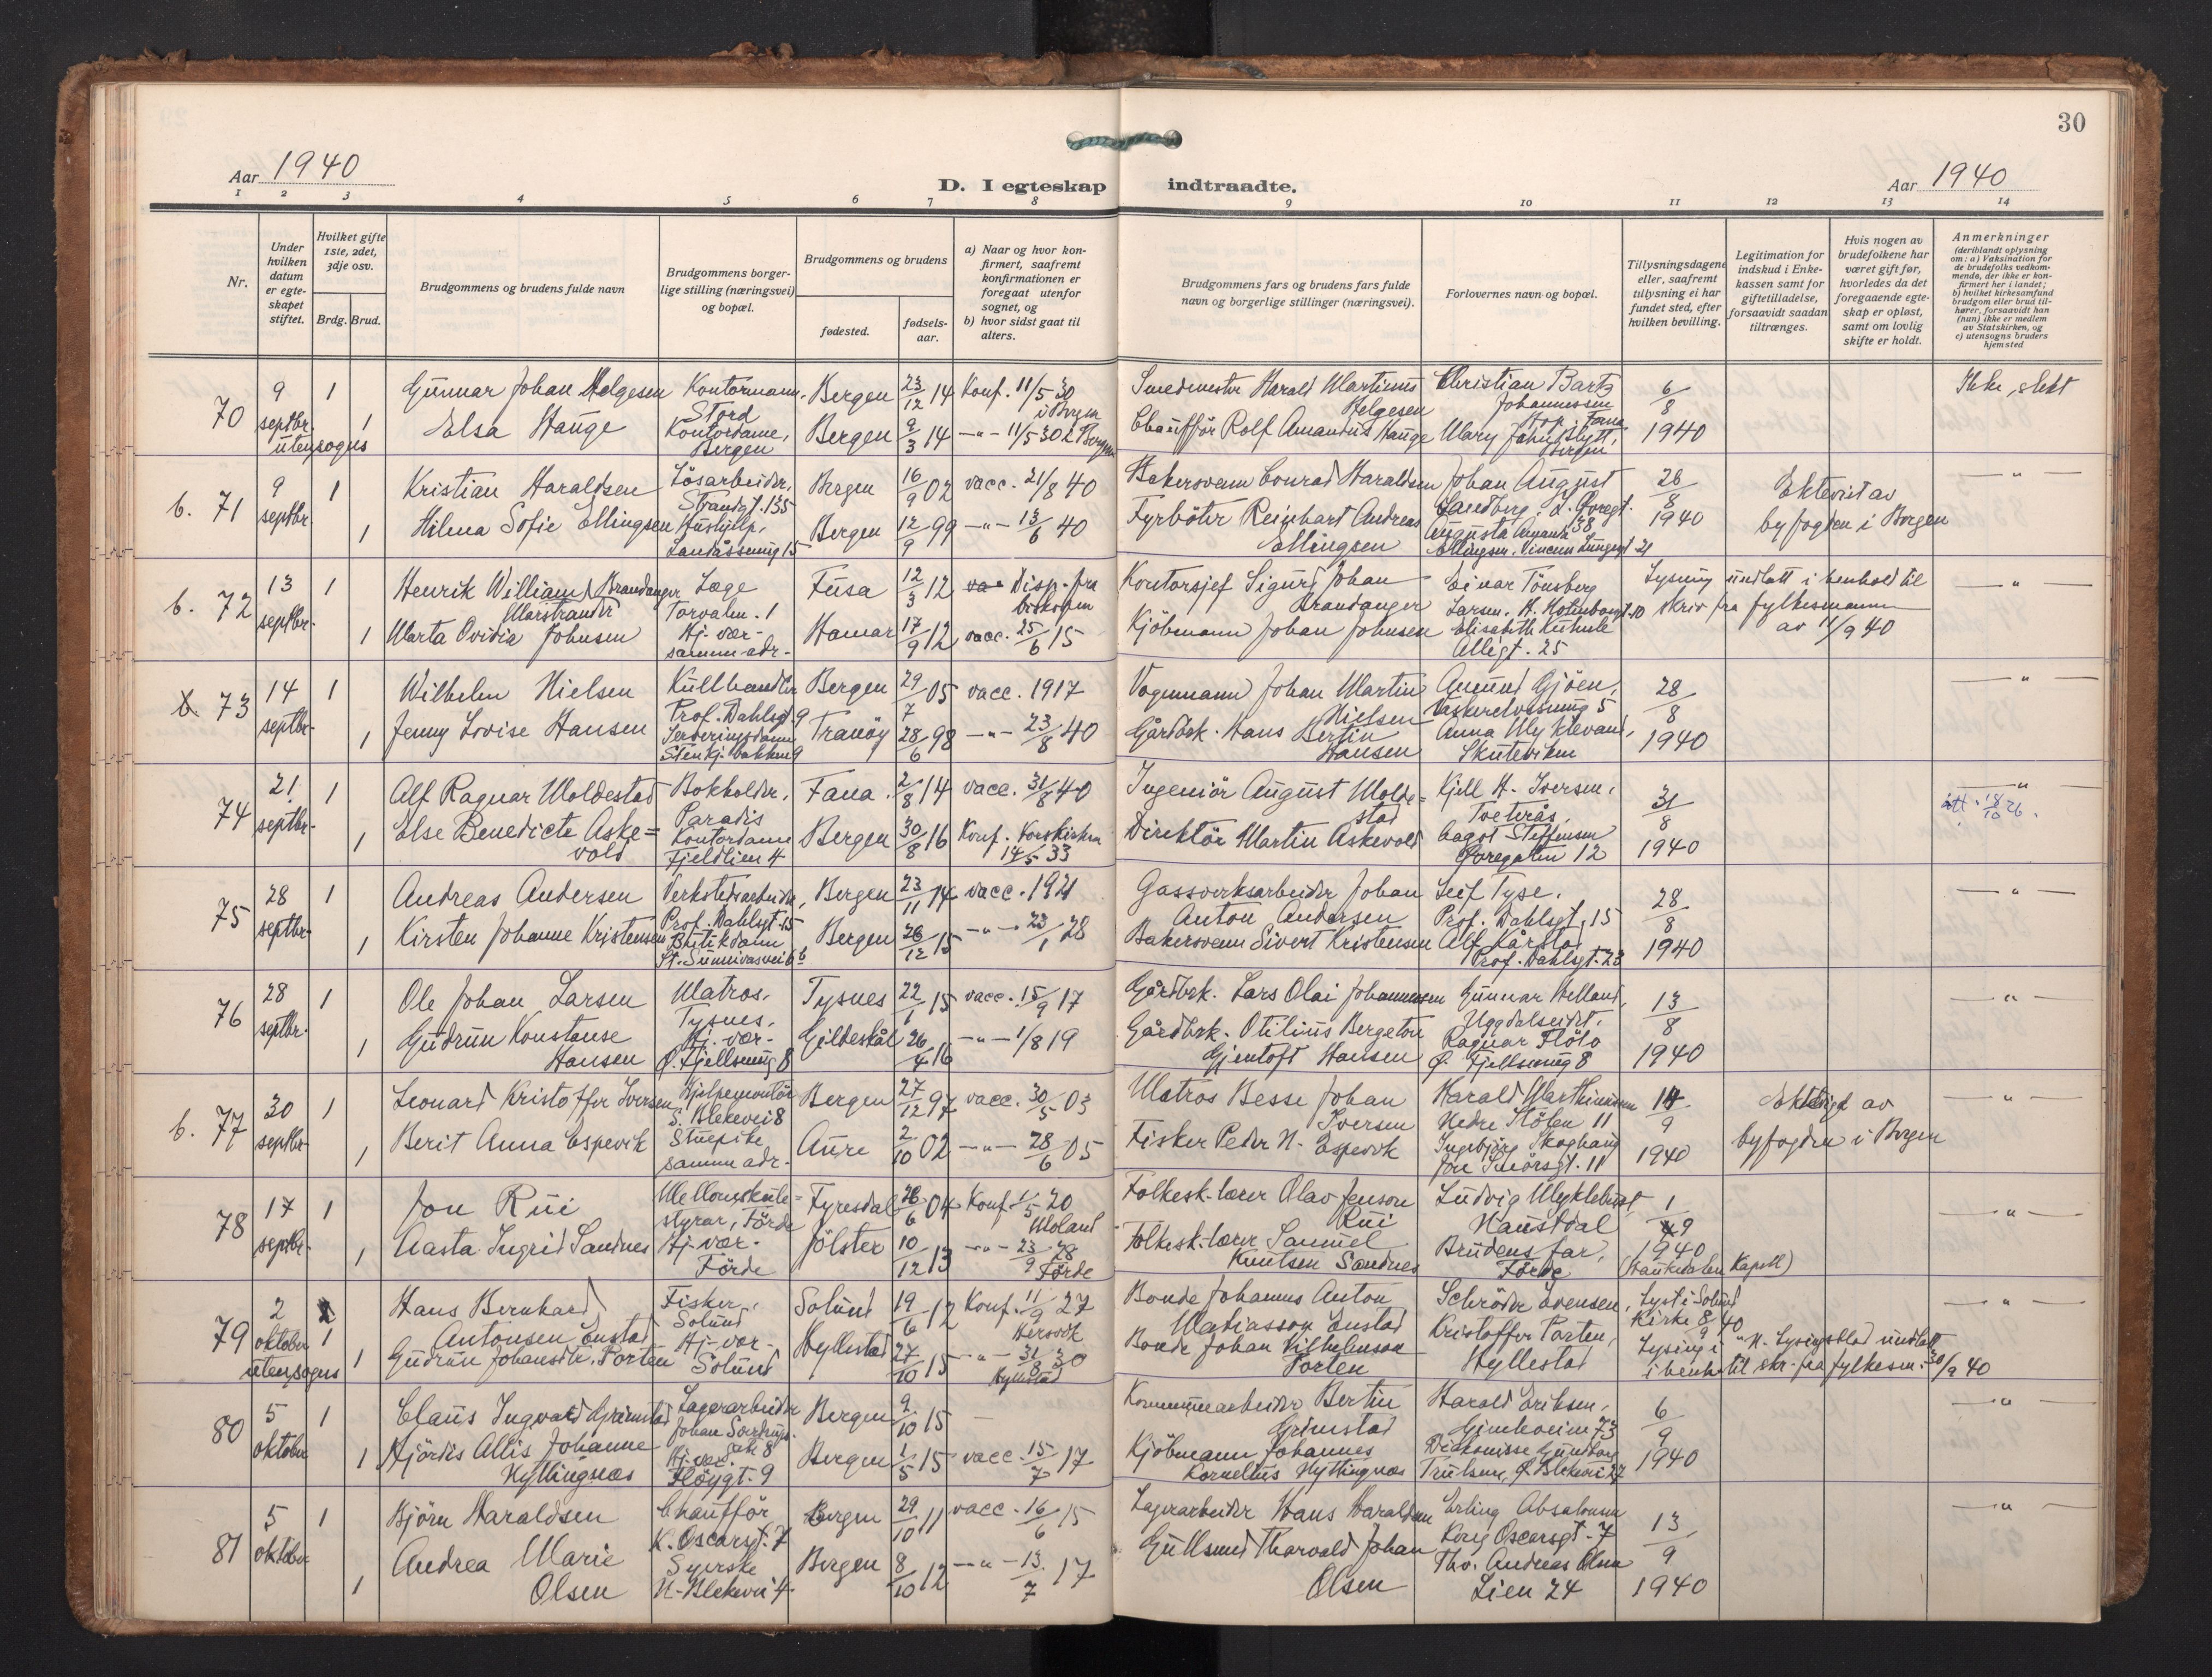 30
Aar 1940
D. I egteskap indtraadte.
Aar 1940
1 2 3 4 5 6 7 8 9 10 11 12 13 14
Nr.
Under hvilken datum er egteskapet stiftet.
Hvilket gifte 1ste, 2det, 3dje osv.
Brdg. Brud.
Brudgommens og brudens fulde navn
Brudgommens borgerlige stilling (næringsvei) og bopæl.
Brudgommens og brudens
fødested.
fødselsaar.
a) Naar og hvor konfirmert, saafremt konfirmationen er foregaat utenfor sognet, og
b) hvor sidst gaat til alters.
Brudgommens fars og brudens fars fulde navn og borgerlige stillinger (næringsvei).
Forlovernes navn og bopæl.
Tillysningsdagene eller, saafremt tillysning ei har fundet sted, efter hvilken bevilling.
Legitimation for indskud i Enkekassen samt for giftetilladelse, forsaavidt saadan tiltrænges.
Hvis nogen av brudefolkene har været gift før, hvorledes da det foregaaende egteskap er opløst, samt om lovlig skifte er holdt.
Anmerkninger
(deriblandt oplysning om: a) Vaksination for de brudefolks vedkommende, der ikke er konfirmert her i landet; b) hvilket kirkesamfund brudgom eller brud tilhører, forsaavidt han (hun) ikke er medlem av Statskirken, og c) utensogns bruders hjemsted
70 9 septbr. utensogns 1 Gunnar Johan Helgesen Kontormann, Stord Bergen 23/12 14 Konf. 11/5 30 i Bergen Smedmester Harald Martinus Helgesen Christian Bartz Johannessen Hop, Fana 6/8 1940 Ikke slekt
1 Elsa Hauge Kontordame, Bergen Bergen 9/3 14 -"- 11/5 30 i Bergen Chaufför Rolf Amandus Hauge Mary Bergen
b. 71 9 septbr. 1 Kristian Haraldsen Lösarbeider, Strandgt. 135 Bergen 16/9 02 vacc. 21/8 40 Bakersvenn Conrad Haraldsen Johan August Sandberg, 28/8 1940 Ektevist av byfogden i Bergen -"-
1 Hilma Sofie Ellingsen Hushjelp, Landåssvung 15 Bergen 12/9 99 -"- 13/6 40 Fyrböter Reinhart Andreas Ellingsen Augusta Amanda Ellingsen,
b. 72 13 septbr. 1 Henrik William Brandanger Marstrander Læge Torvalm. 1 Fusa 12/3 12 Disp. fra biskopen Kontorsjef Sigurd Johan Brandanger Einar Tönsberg Larsen, Lysning undlatt i henhold til skriv fra fylkesmannen av 11/9 40 -"-
1 Marta Ovidia Johnsen Hj. vær. samme adr. Hamar 17/9 12 vacc. 25/6 15 Kjöbmann Johan Johnsen Elisabeth Allégt. 25
b. 73 14 septbr. 1 Wilhelm Nielsen Kullhandler Prof. Dahlsgt 9 Bergen 29/7 05 vacc. 1917 Vognmann Johan Martin Nielsen Amund Gjöen, 28/8 1940 -"-
1 Jenny Lovise Hansen Serveringsdame Stenkj. bakken 9 Tranöy 28/6 98 -"- 23/8 40 Gårdbr. Hans Bertin Hansen Anna Myklevand, Skuteviken
74 21. septbr. 1 Alf Ragnar Moldestad Bokholder, Paradis Fana 2/8 14 vacc. 31/8 40 Ingeniör August Moldestad Kjell H. Iversen, Tveterås, 31/8 1940 -"- att. 18/10 26.
1 Else Benedicte Askevold Kontordame Fjeldlien 4 Bergen 30/8 16 Konf. Korskirken 14/5 33 Direktör Martin Askevold Aagot Steffensen Övregaten 12
75 28 septbr. 1 Andreas Andersen Verkstedsarbeider, Prof. Dahlsgt. 15 Bergen 23/11 14 vacc. 1921 Gassverksarbeider Johan Anton Andersen Leif Tyse, Prof. Dahlsgt. 15 28/8 1940 -"-
1 Kirsten Johanne Kristensen Butikdame St. Sunnivasvei 6 b Bergen 26/12 15 -"- 23/1 28 Bakersvenn Sivert Kristensen Alf Kårstad Prof. Dahlsgt. 23
76 28 septbr. 1 Ole Johan Larsen Matros, Tysnes, Tysnes 22/1 15 vacc. 15/9 17 Gårdbrk. Lars Olai Johannessen Gunnar Helland, Uggdalseidet, 13/8 1940 -"-
1 Gudrun Konstanse Hansen Hj. vær. Ø. Fjellsmug 8 Gildeskål 26/4 16 -"- 1/8 19 Gårdbrk. Otilius Bergeton Gjentoft Hansen Ragnar Flölo Ø. Fjellsmug 8
b. 77 30 septbr. 1 Leonard Kristoffer Iversen Hjelpemontör S. Blekevei 8 Bergen 27/12 97 vacc. 30/5 03 Matros Besse Johan Iversen Harald Marthinussen Nedre Stölen 11 14/9 1940 Ektevigd av byfogden i Bergen -"-
1 Berit Anna Espevik Stuepike samme adr. Aure 2/10 02 -"- 28/6 05 Fisker Peder N. Espevik Ingebjörg Skoghaug Jon Smörsgt. 11
78 17 septbr. 1 Jon Rui Mellomskulestyrar, Förde Fyresdal 26/6 04 Konf. 1/5 20 Moland Folkesk. lærer Olav Jenson Rui Ludvig Myklebust Naustdal 1/9 1940 (Haukedalen Kapell) -"-
1 Aasta Ingrid Sandnes Hj. vær. Förde Jölster 10/12 13 -"- 23/9 28 Förde Folkesk. lærer Samuel Knutsen Sandnes Brudens far, Förde
79 2 oktober utensogns 1 Hans Bernhard Antonsen Enstad Fisker, Solund Solund 19/6 12 Konf. 11/9 27 Hersvik Bonde Johannes Anton Matiasson Enstad Schröder Svensen, Lyst i Solund Kirke 8/9 40 -"-
1 Gudrun Johansdtr. Porten Hj. vær. Solund Hyllestad 27/10 15 -"- 31/8 30 Hyllestad Bonde Johan Vilhelmson Porten Kristoffer Porten, Hyllestad Lysing i N. Lysingsblad undlatt i henh. til skr. fra fylkesm. 30/9 40
80 5 oktober 1 Claus Ingvald Grimstad Lagerarbeider Johan Sverdrups Bergen 9/10 15 - Kommunearbeider Bertin Grimstad Harald Eriksen, Gimleveien 73 6/9 1940 -"-
1 Hjördis Allis Johanne Hyttingnæs Hj. vær. Flöygt. 9 Bergen 1/5 15 vacc. 15/7 17 Kjöbmann Johannes Kornelius Hyttingnæs Diakonisse Gunborg Trulsen, Ø. Blekevei 27
81 5 oktober 1 Björn Haraldsen Chaufför K. Oscarsgt. 7 Bergen 29/10 11 vacc. 16/6 15 Lagerarbeider Hans Haraldsen Erling Absalonsen Kong Oscarsgt. 7 13/9 1940 -"-
1 Andrea Marie Olsen Syerske N. Blekevei 4 Bergen 8/10 12 -"- 13/7 17 Gullsmed Tharvald Johan Olsen Tho. Andreas Olsen Lien 24